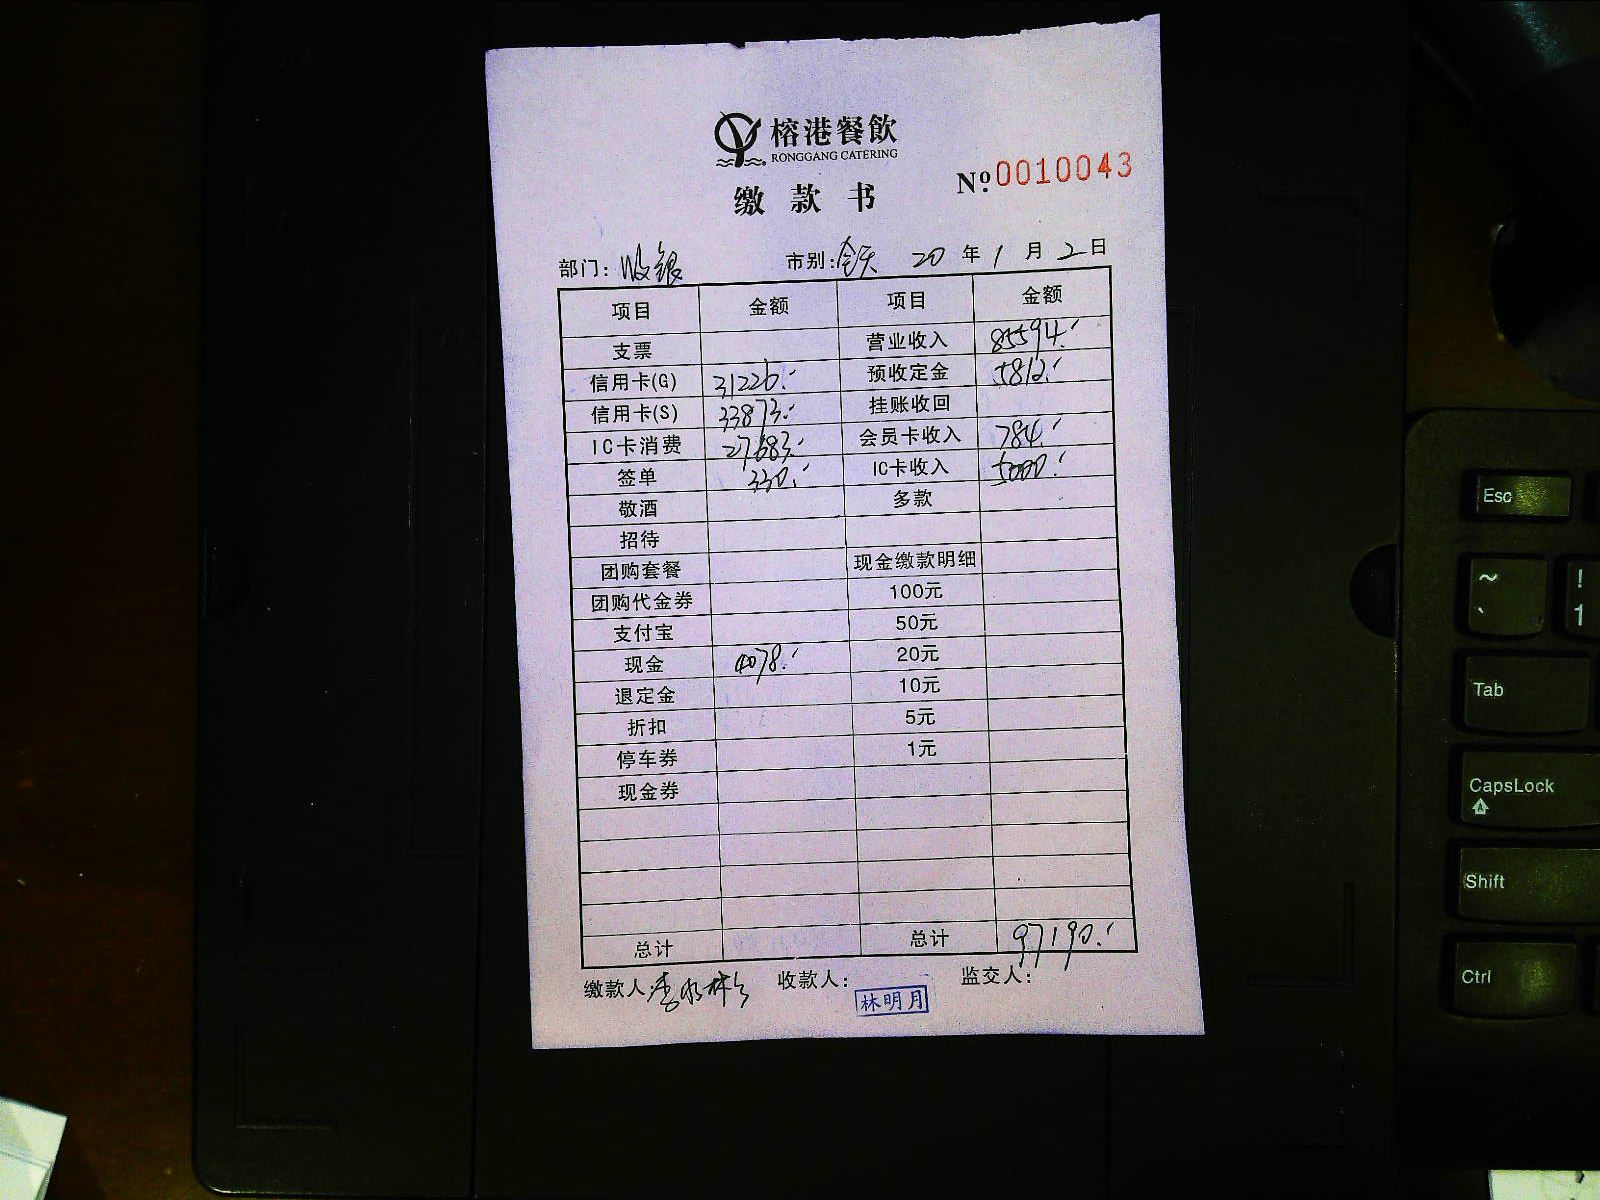 榕港餐飲
RONGGANG CATERING
缴款书
№ 0010043
部门: 收银 市别: 全天 20 年 1 月 2 日
项目 金额 项目 金额
支票 营业收入 85594.-
信用卡(G) 31226.- 预收定金 5812.-
信用卡(S) 33873.- 挂账收回
IC卡消费 27683.- 会员卡收入 784.-
签单 330.- IC卡收入 5000.-
敬酒 多款
招待
团购套餐 现金缴款明细
团购代金券 100元
支付宝 50元
现金 4078.- 20元
退定金 10元
折扣 5元
停车券 1元
现金券
总计 总计 97190.-
缴款人: 李 收款人: 林明月 监交人:
Esc
~ ! 
` 1
Tab
CapsLock
A
Shift
Ctrl